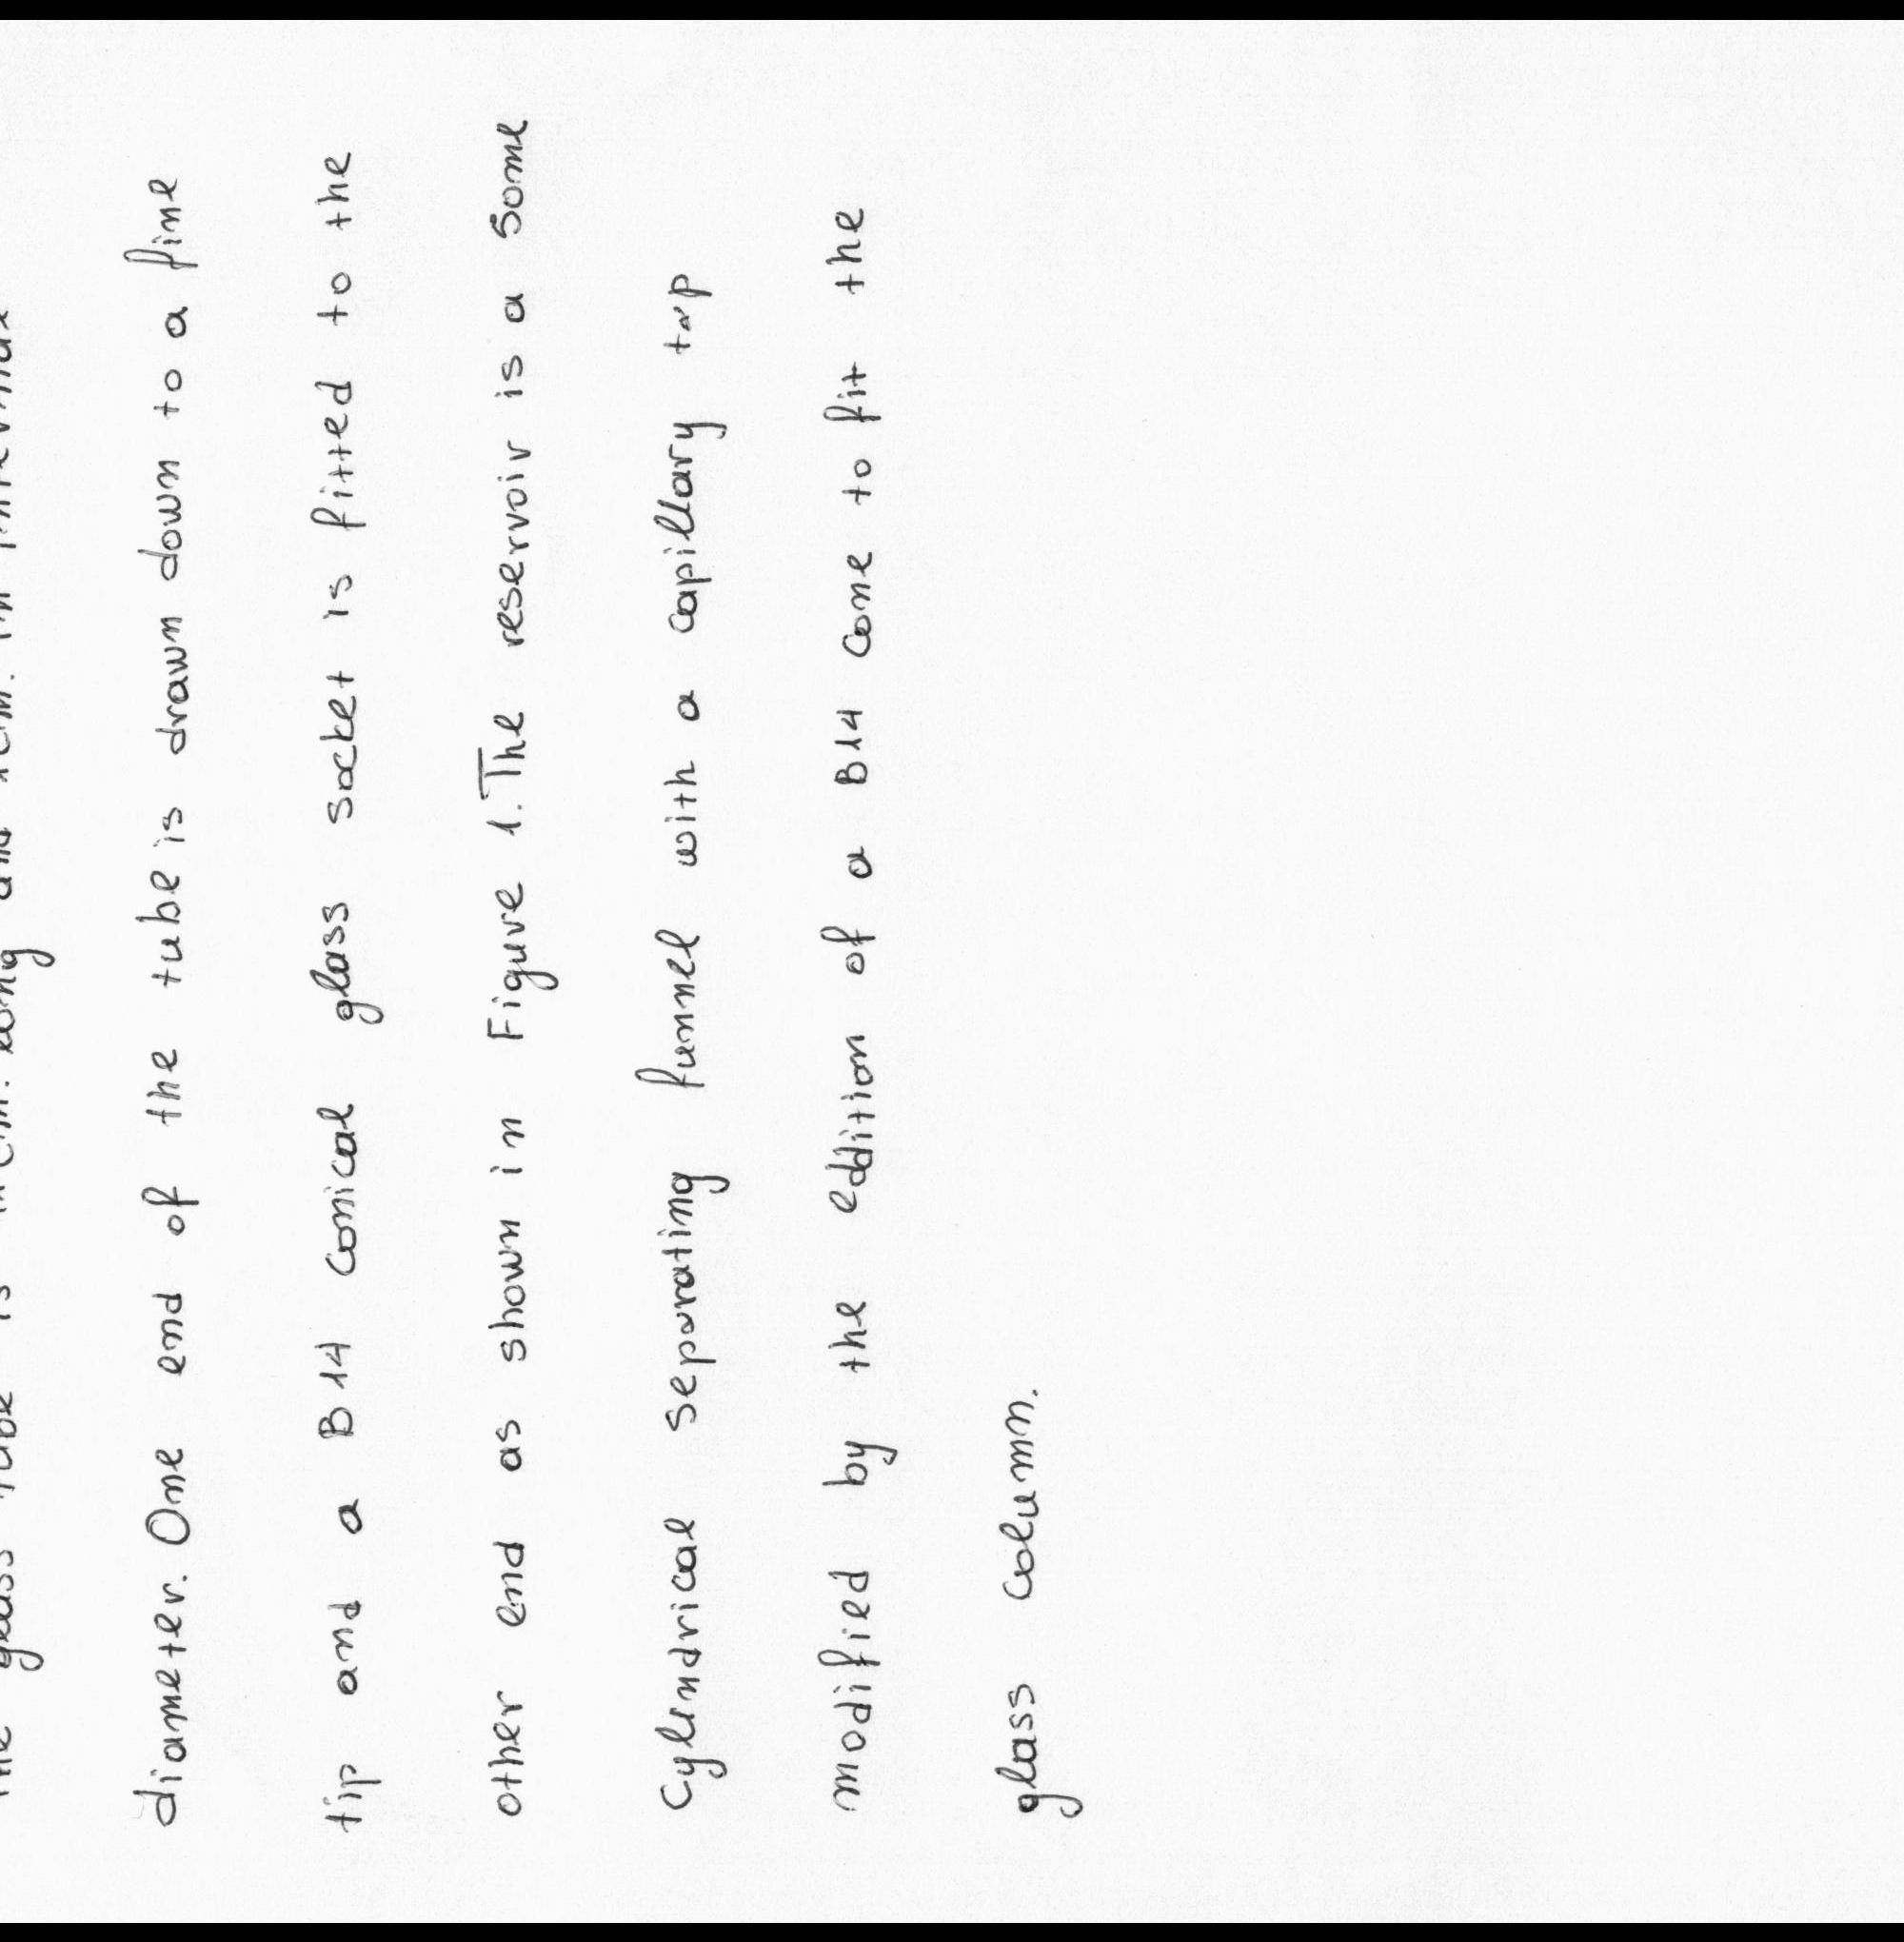 The glass tube is cm. long and 1cm. in internal
diameter. One end of the tube is drawn down to a fine
tip and a B14 conical glass socket is fitted to the
other end as shown in Figure 1. The reservoir is a some
Cylindrical separating funnel with a capillary tap
modified by the eddition of a B14 cone to fit the
glass column.